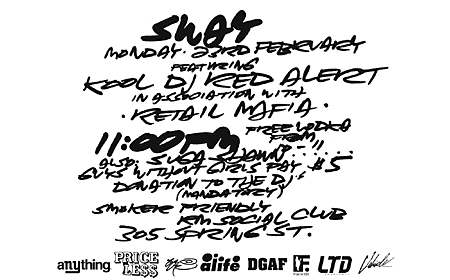 SWAY
MONDAY · 23RD FEBRUARY
FEATURING
KOOL DJ RED ALERT
IN ASSOCIATION WITH
· RETAIL MAFIA ·
FREE VODKA
11:00PM FROM -11
ALSO: SUGA SHAWN
GUYS WITHOUT GIRLS PAY $5
DONATION TO THE DJ
(MANDATORY)
SMOKER FRIENDLY
KM SOCIAL CLUB
305 SPRING ST.
anything PRICELESS alife DGAF LTD